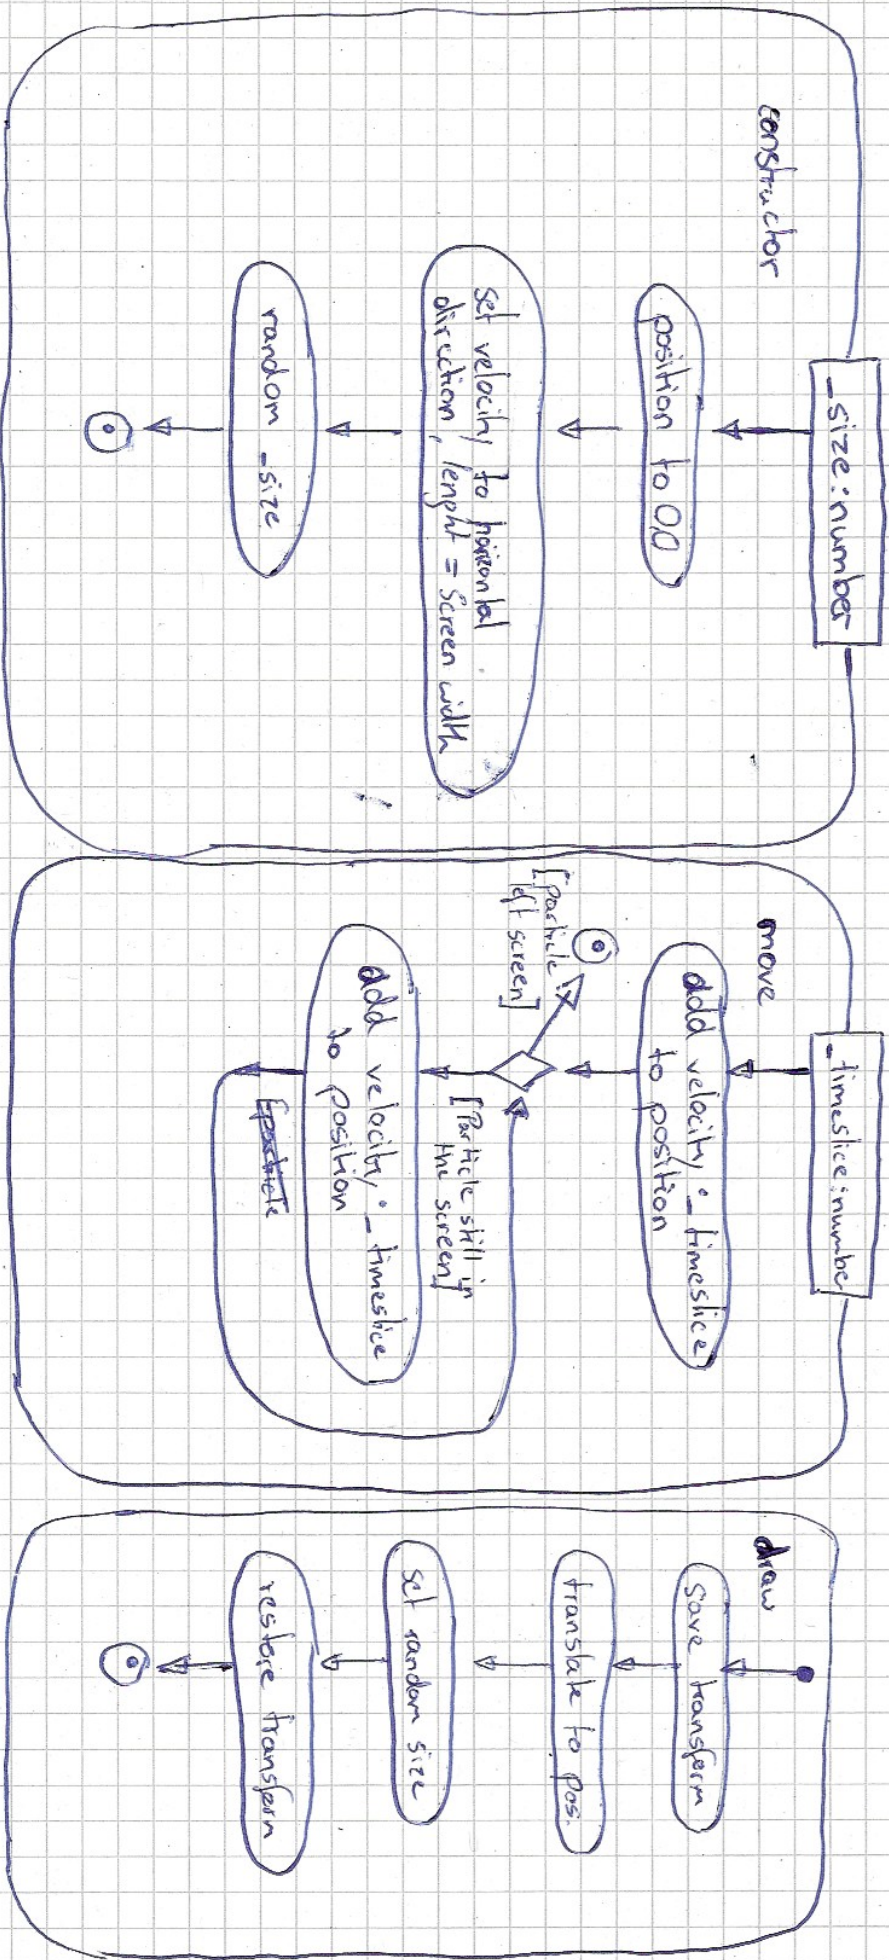 constructor
_size:number
position to 0,0
set velocity to horizontal
direction, lenght = Screen width
random _size
move
_timeslice:number
add velocity · _timeslice
to position
[Particle
left screen]
[Particle still in
the screen]
add velocity · _timeslice
to position
[particle
draw
save transform
translate to pos.
set random size
restore transform